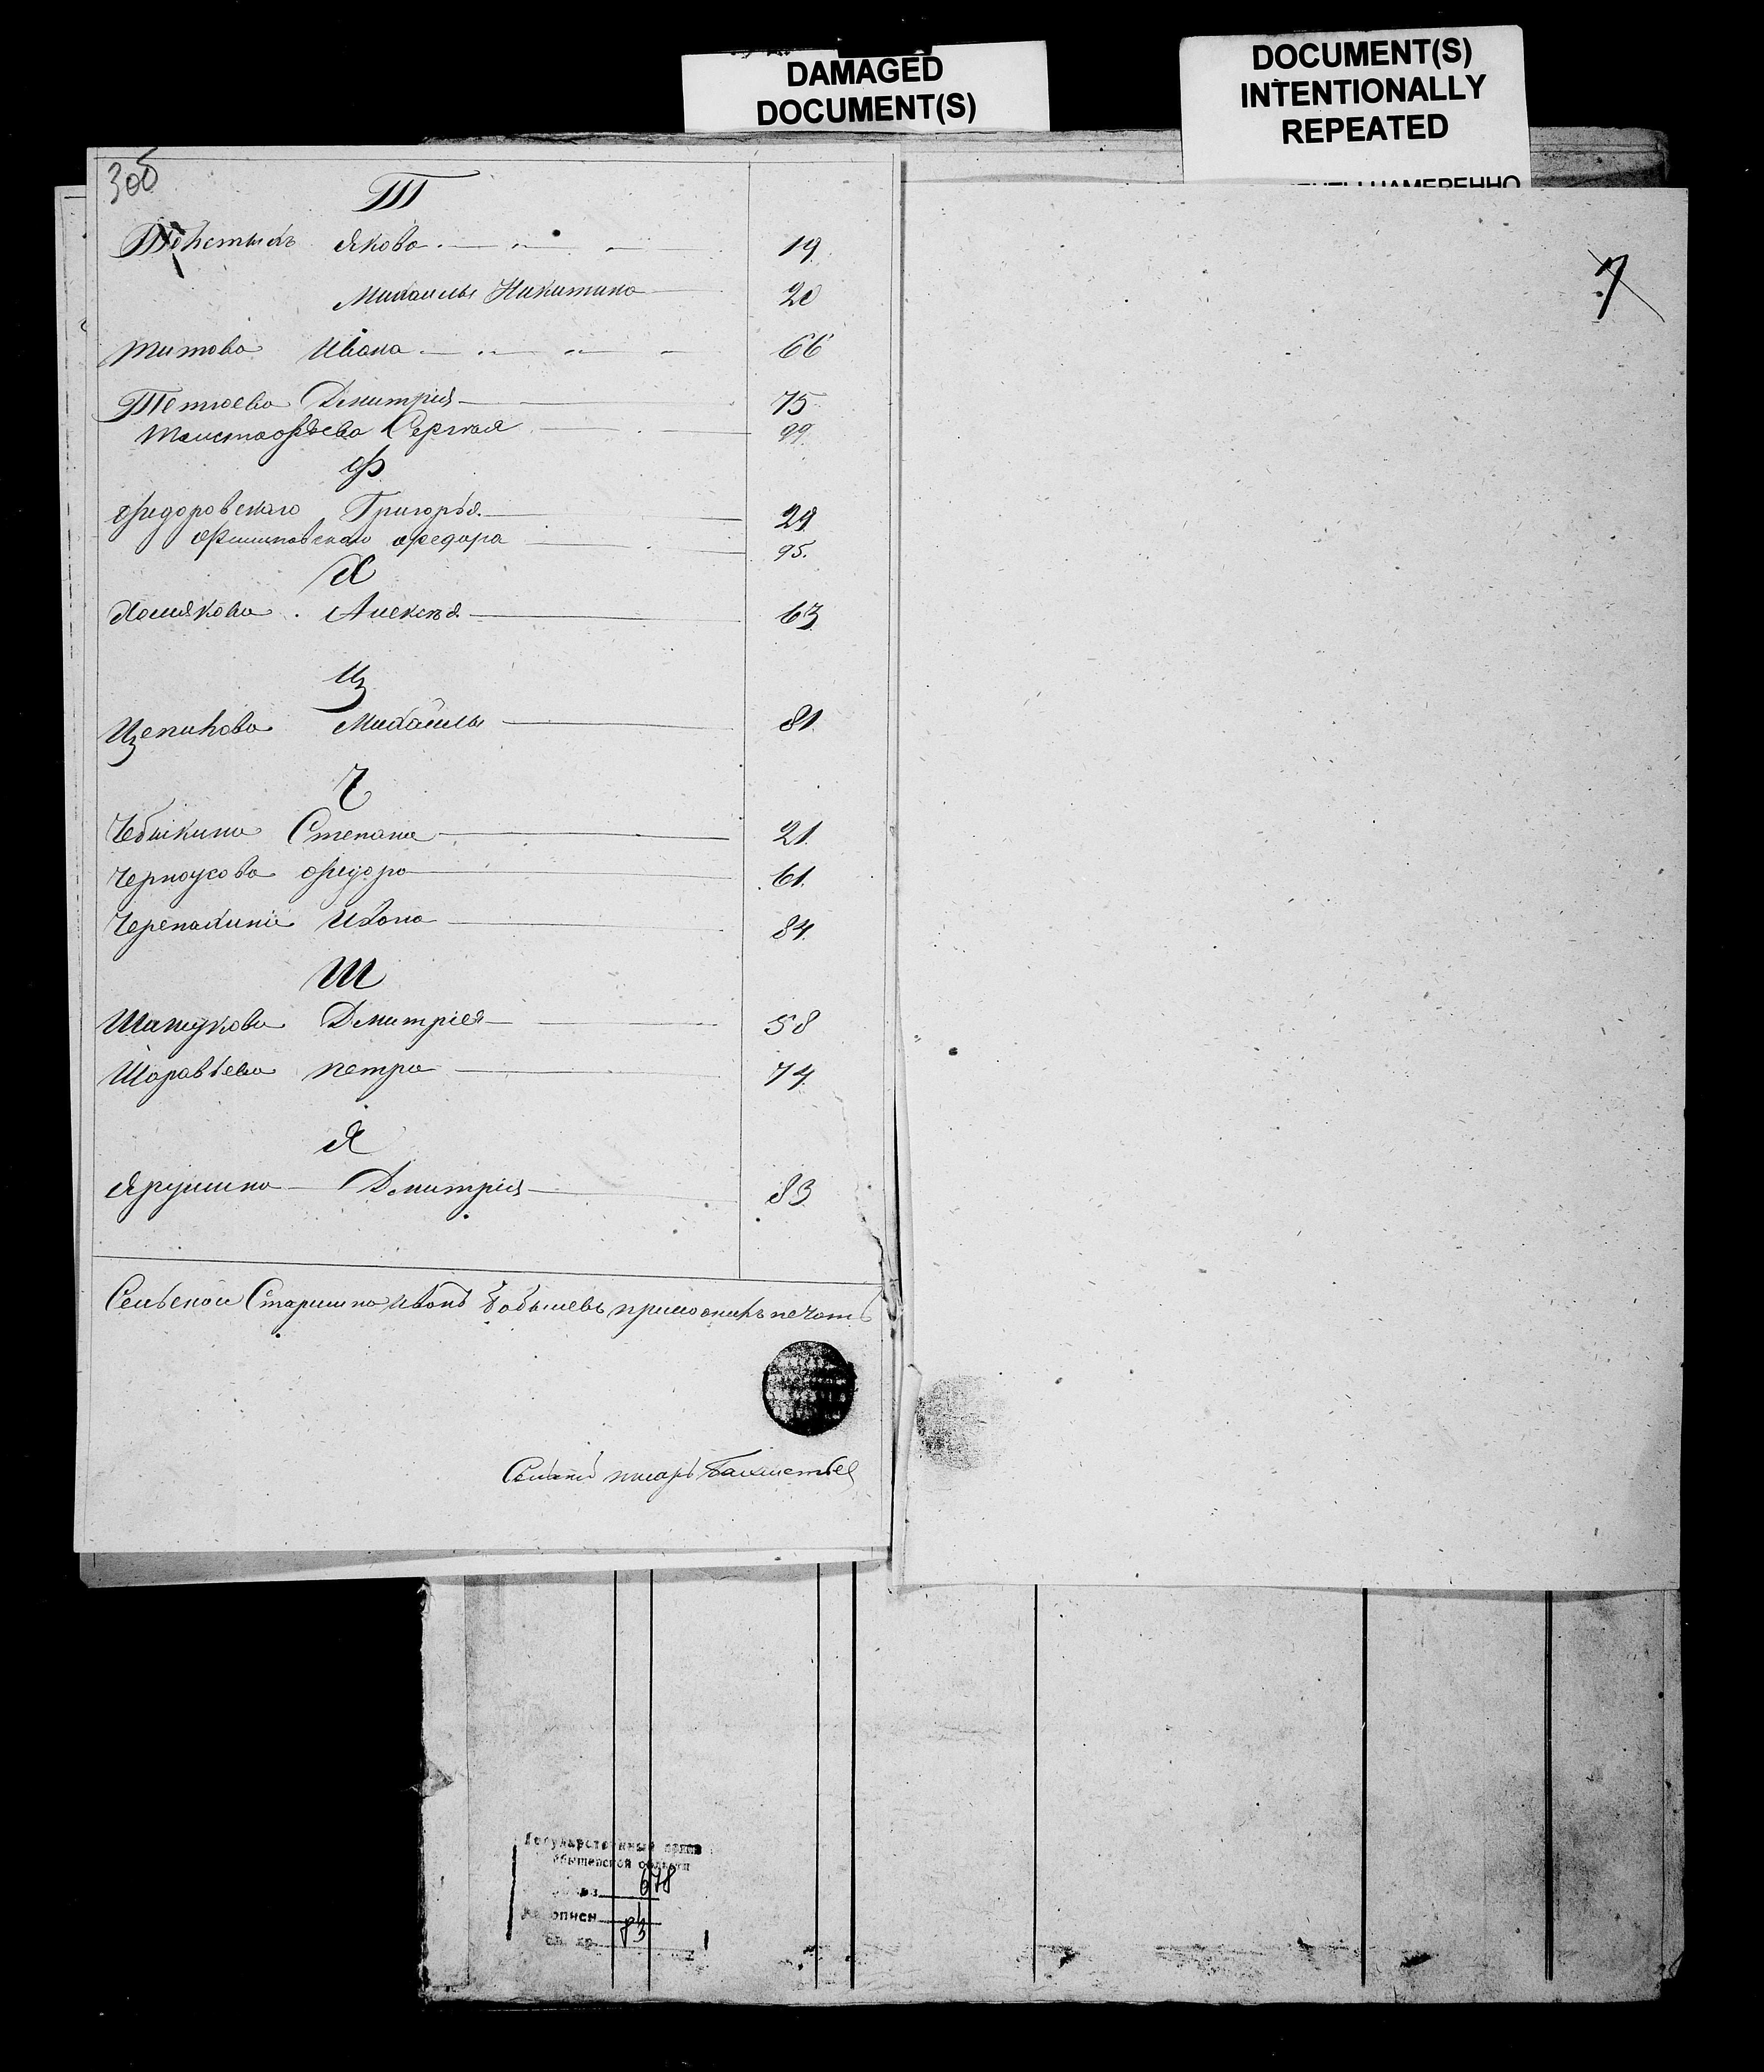 DAMAGED
DOCUMENT(S)
DOCUMENT(S)
INTENTIONALLY
REPEATED
НАМЕРЕННО
3об
Т
Якова 19
Михаилы Никитина 20
Титова Ивана 66
Тетюева Дмитрія 75
Сергѣя 99
Ф
Федоровскаго Григорья 29
Филиповскаго Федора 95.
Х
Хомякова Алексѣя 63
Ц
Цепихова Михайлы 81
Ч
Чебыкина Степана 21
Черноусова Федора 61
Черепахина Ивана 84
Ш
Шапукова Дмитрія 58
Шоравьева петра 74
Я
Ярушина Дмитрія 83
Сельской Старшина Иванъ Бобышевъ приложилъ печать
Сельскій писарь
7
Государственный архив
области
678
опись